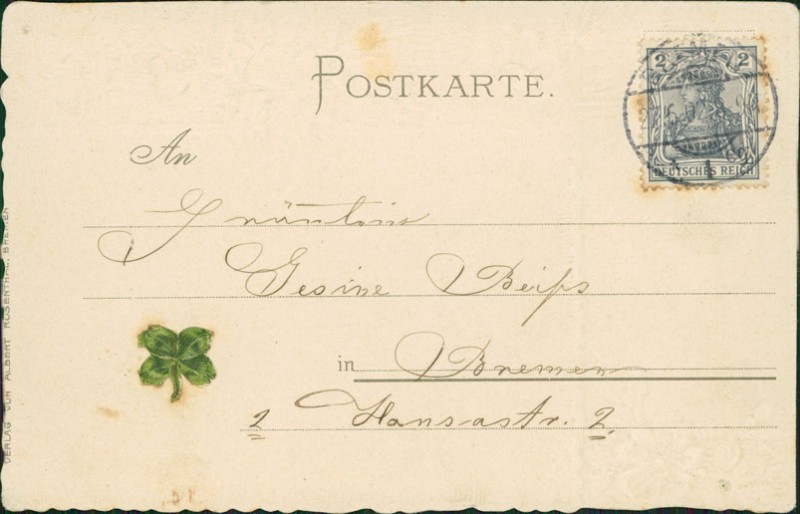 POSTKARTE.
2 2
DEUTSCHES REICH
An
Fräulein
Gesine Beißs
in Bremen
2 Hansastr. 2.
VERLAG VON ALBERT ROSENTHAL, BREMEN